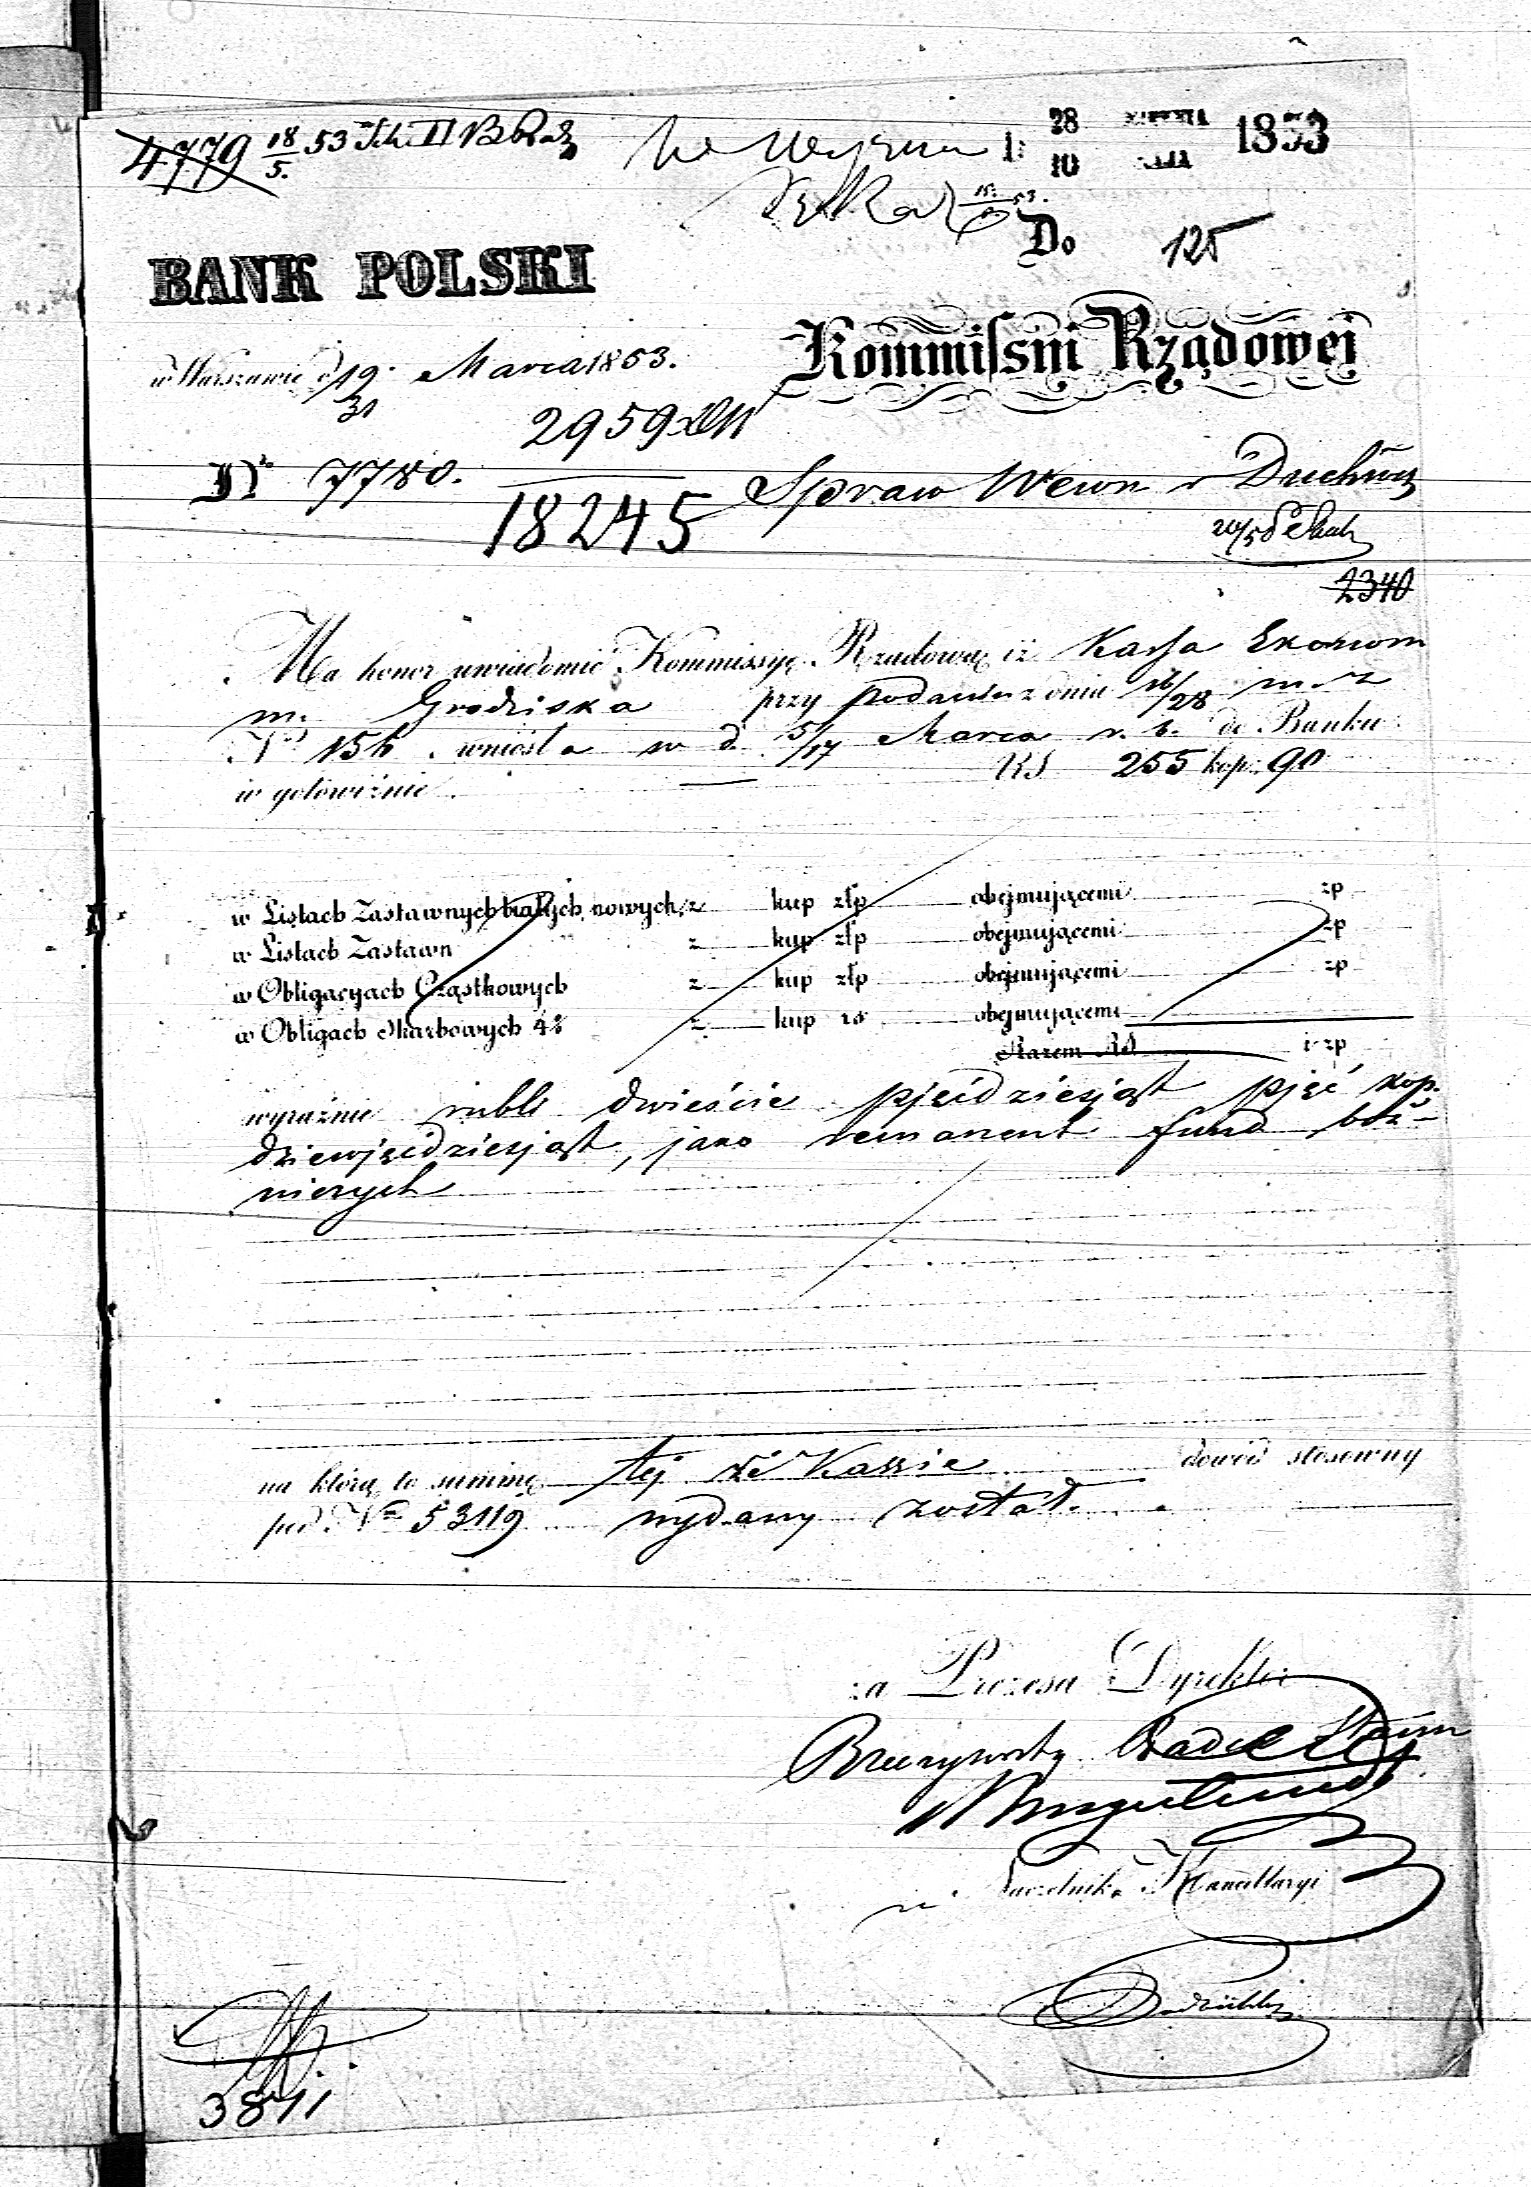 4779 18/5. 53
28 KWIETNIA 1853
10 MAJA
Do 125
BANK POLSKI
Kommissyi Rządowej
w Warszawie d. 19/31 Marca 1853.
2959
Nr 7780.
18245
Spraw Wewn i Duchow
2340
Ma honor uwiadomić Kommissyę Rządową iż Kassa Ekonom
m. Grodziska przy podaniu z dnia 16/28 m. z
No 156 wniosła w d. 5/17 Marca r. b. do Banku
w gotowiźnie RS 255 kop. 90
w Listach Zastawnych białych nowych z kup złp obejmującemi zp
w Listach Zastawn z kup złp obejmującemi zp
w Obligacyach Cząstkowych z kup złp obejmującemi zp
w Obligach Skarbowych 4% z kup rs obejmującemi
Razem RS i zp
wyraźnie rubli dwieście pięćdziesiąt pięć kop.
dziewięćdziesiąt, jako remanent fund boż-
niczych
na którą to summę tej że Kassie dowód stosowny
pod No 53119 wydany został.
za Prezesa Dyrektor
Rzeczywisty Radca Stanu
Naczelnik Kancellaryi
3841